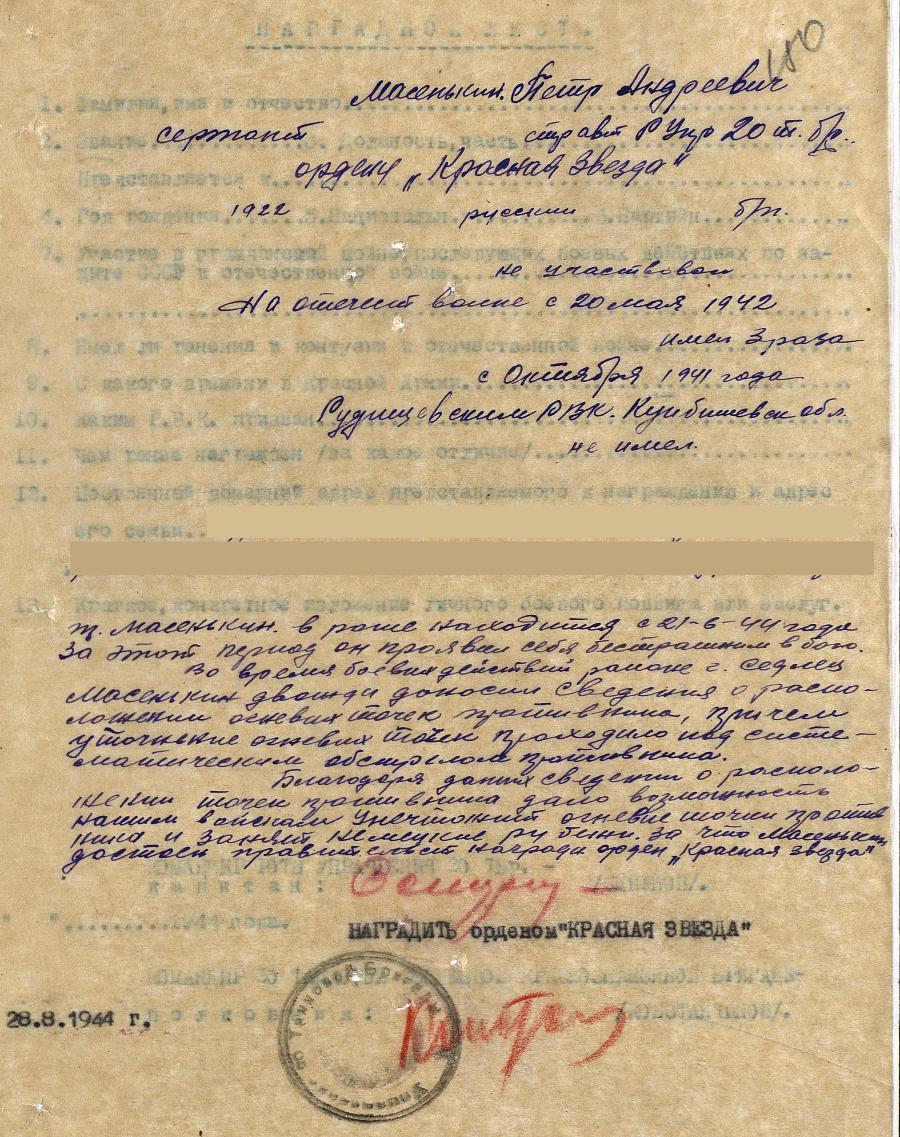 НАГРАДНОЙ ЛИСТ.
180
1. Фамилия, имя и отчество Масенькин. Петр Андреевич
2. Звание сержант 3. Должность, часть Р Упр 20 т. бр.
Представляется к ордену „Красная Звезда"
4. Год рождения 1922 5. Национальн. русский 6. Партийн. б/п.
7. Участие в гражданской войне, последующих боевых действиях по за-
щите СССР и отечественной войне не участвовал
На отечест войне с 20 мая 1942
8. Имел ли ранения и контузии в отечественной войне имел 3 раза
9. С какого времени в Красной Армии с Октября 1941 года
10. Каким Р.В.К. призван РВК. Куйбышевск обл.
11. Чем ранее награжден /за какое отличие/ не имел.
12. Постоянный домашний адрес представляемого к награждению и адрес
его семьи
13. Краткое, конкретное изложение личного боевого подвига или заслуг.
т. Масенькин. в роте находится с 21-6-44 года
За этот период он проявил себя бесстрашним в бою.
Во время боевих действий районе г. Седлец
Масенькин дважди доносил сведения о распо-
ложении огневих точек противника, причем
уточнение огневих точек проходило под систе-
матическим обстрелом противника.
Благодоря даних сведении о располо-
жении точек противника дало возможность
нашим войскам уничтожит огневие точки против
ника и занят немецкие рубежи. За что Масенькин
достоен правителст награди орден „Красная звезда"
КОМАНДИР РОТЫ УПРАВЛЕНИЯ 20 ТБр. -
капитан:
" " 1944 года.
НАГРАДИТЬ орденом "КРАСНАЯ ЗВЕЗДА"
КОМАНДИР 20 КРАСНОЗНАМЕННОЙ БРИГАДЫ-
полковник: /КОНСТАНТИНОВ/.
28.8.1944 г.
Управление 20 Танковой Бригады